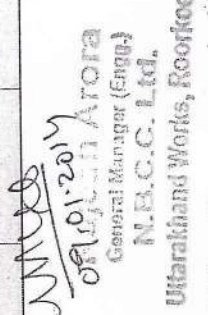 09.01.2014
Arora
General Manager (Engg.)
N.B.C.C. Ltd.
Uttarakhand Works, Roorkee